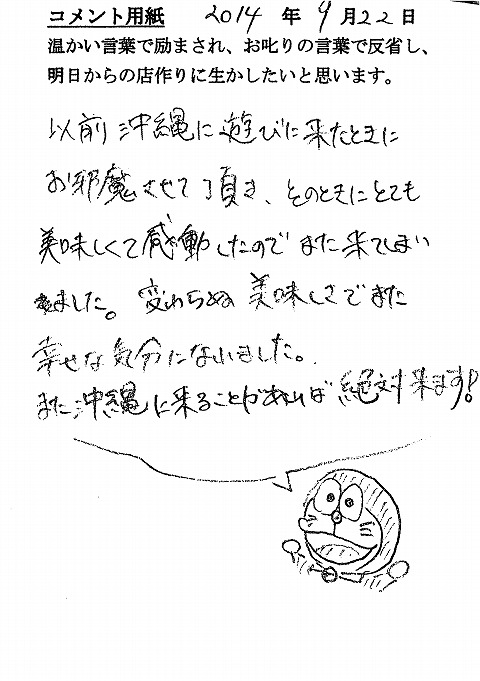 コメント用紙 2014 年 9 月 22 日
温かい言葉で励まされ、お叱りの言葉で反省し、
明日からの店作りに生かしたいと思います。
以前沖縄に遊びに来たときに
お邪魔させて頂き、そのときにとても
美味しくて感動したのでまた来てしまい
ました。変わらぬ美味しさでまた
幸せな気分になりました。
また沖縄に来ることがあれば絶対来ます!